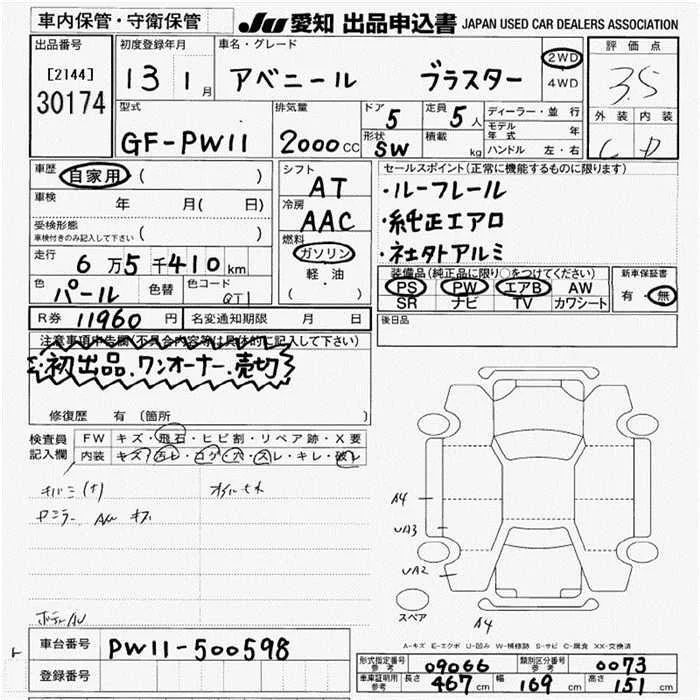 車内保管・守衛保管
JU 愛知 出品申込書 JAPAN USED CAR DEALERS ASSOCIATION
出品番号
[2144]
30174
初度登録年月
13 1 月
車名・グレード
アベニール ブラスター
2WD
4WD
評価点
3.5
外装 内装
C D
型式
GF-PW11
排気量
2000 CC
ドア
5
形状
SW
定員
5 人
積載
kg
ディーラー・並行
モデル年式 年
ハンドル 左・右
車歴
自家用 ( )
車検 年 月( 日)
受検形態
車検付きのみ記入して下さい ( )
走行
6 万 5 千 410 km
色
パール
色替
色コード
QT1
シフト
AT
冷房
AAC
燃料
ガソリン
軽・油
( )
セールスポイント(正常に機能するものに限ります)
・ルーフレール
・純正エアロ
・社外アルミ
装備品(純正品に限り○をつけてください)
PS PW エアB AW
SR ナビ TV カワシート
新車保証書
有・無
R券 11960 円
名変通知期限 月 日
後日品
注意事項申告欄(不具合内容等は具体的に記入して下さい)
初出品、ワンオーナー、売切
修復歴 有 (箇所 )
検査員記入欄
FW キズ・飛石・ヒビ割・リペア跡・X要
内装 キズ・汚レ・コゲ・穴・スレ・キレ・破レ
A4
UA3
UA2
スペア
A4
A-キズ E-エクボ U-凹み W-補修跡 S-サビ C-腐食 XX-交換済
車台番号 PW11-500598
登録番号
形式指定番号 参考 09066
類別区分番号 参考 0073
車庫証明用 参考 長さ 467 cm 幅 169 cm 高さ 151 cm